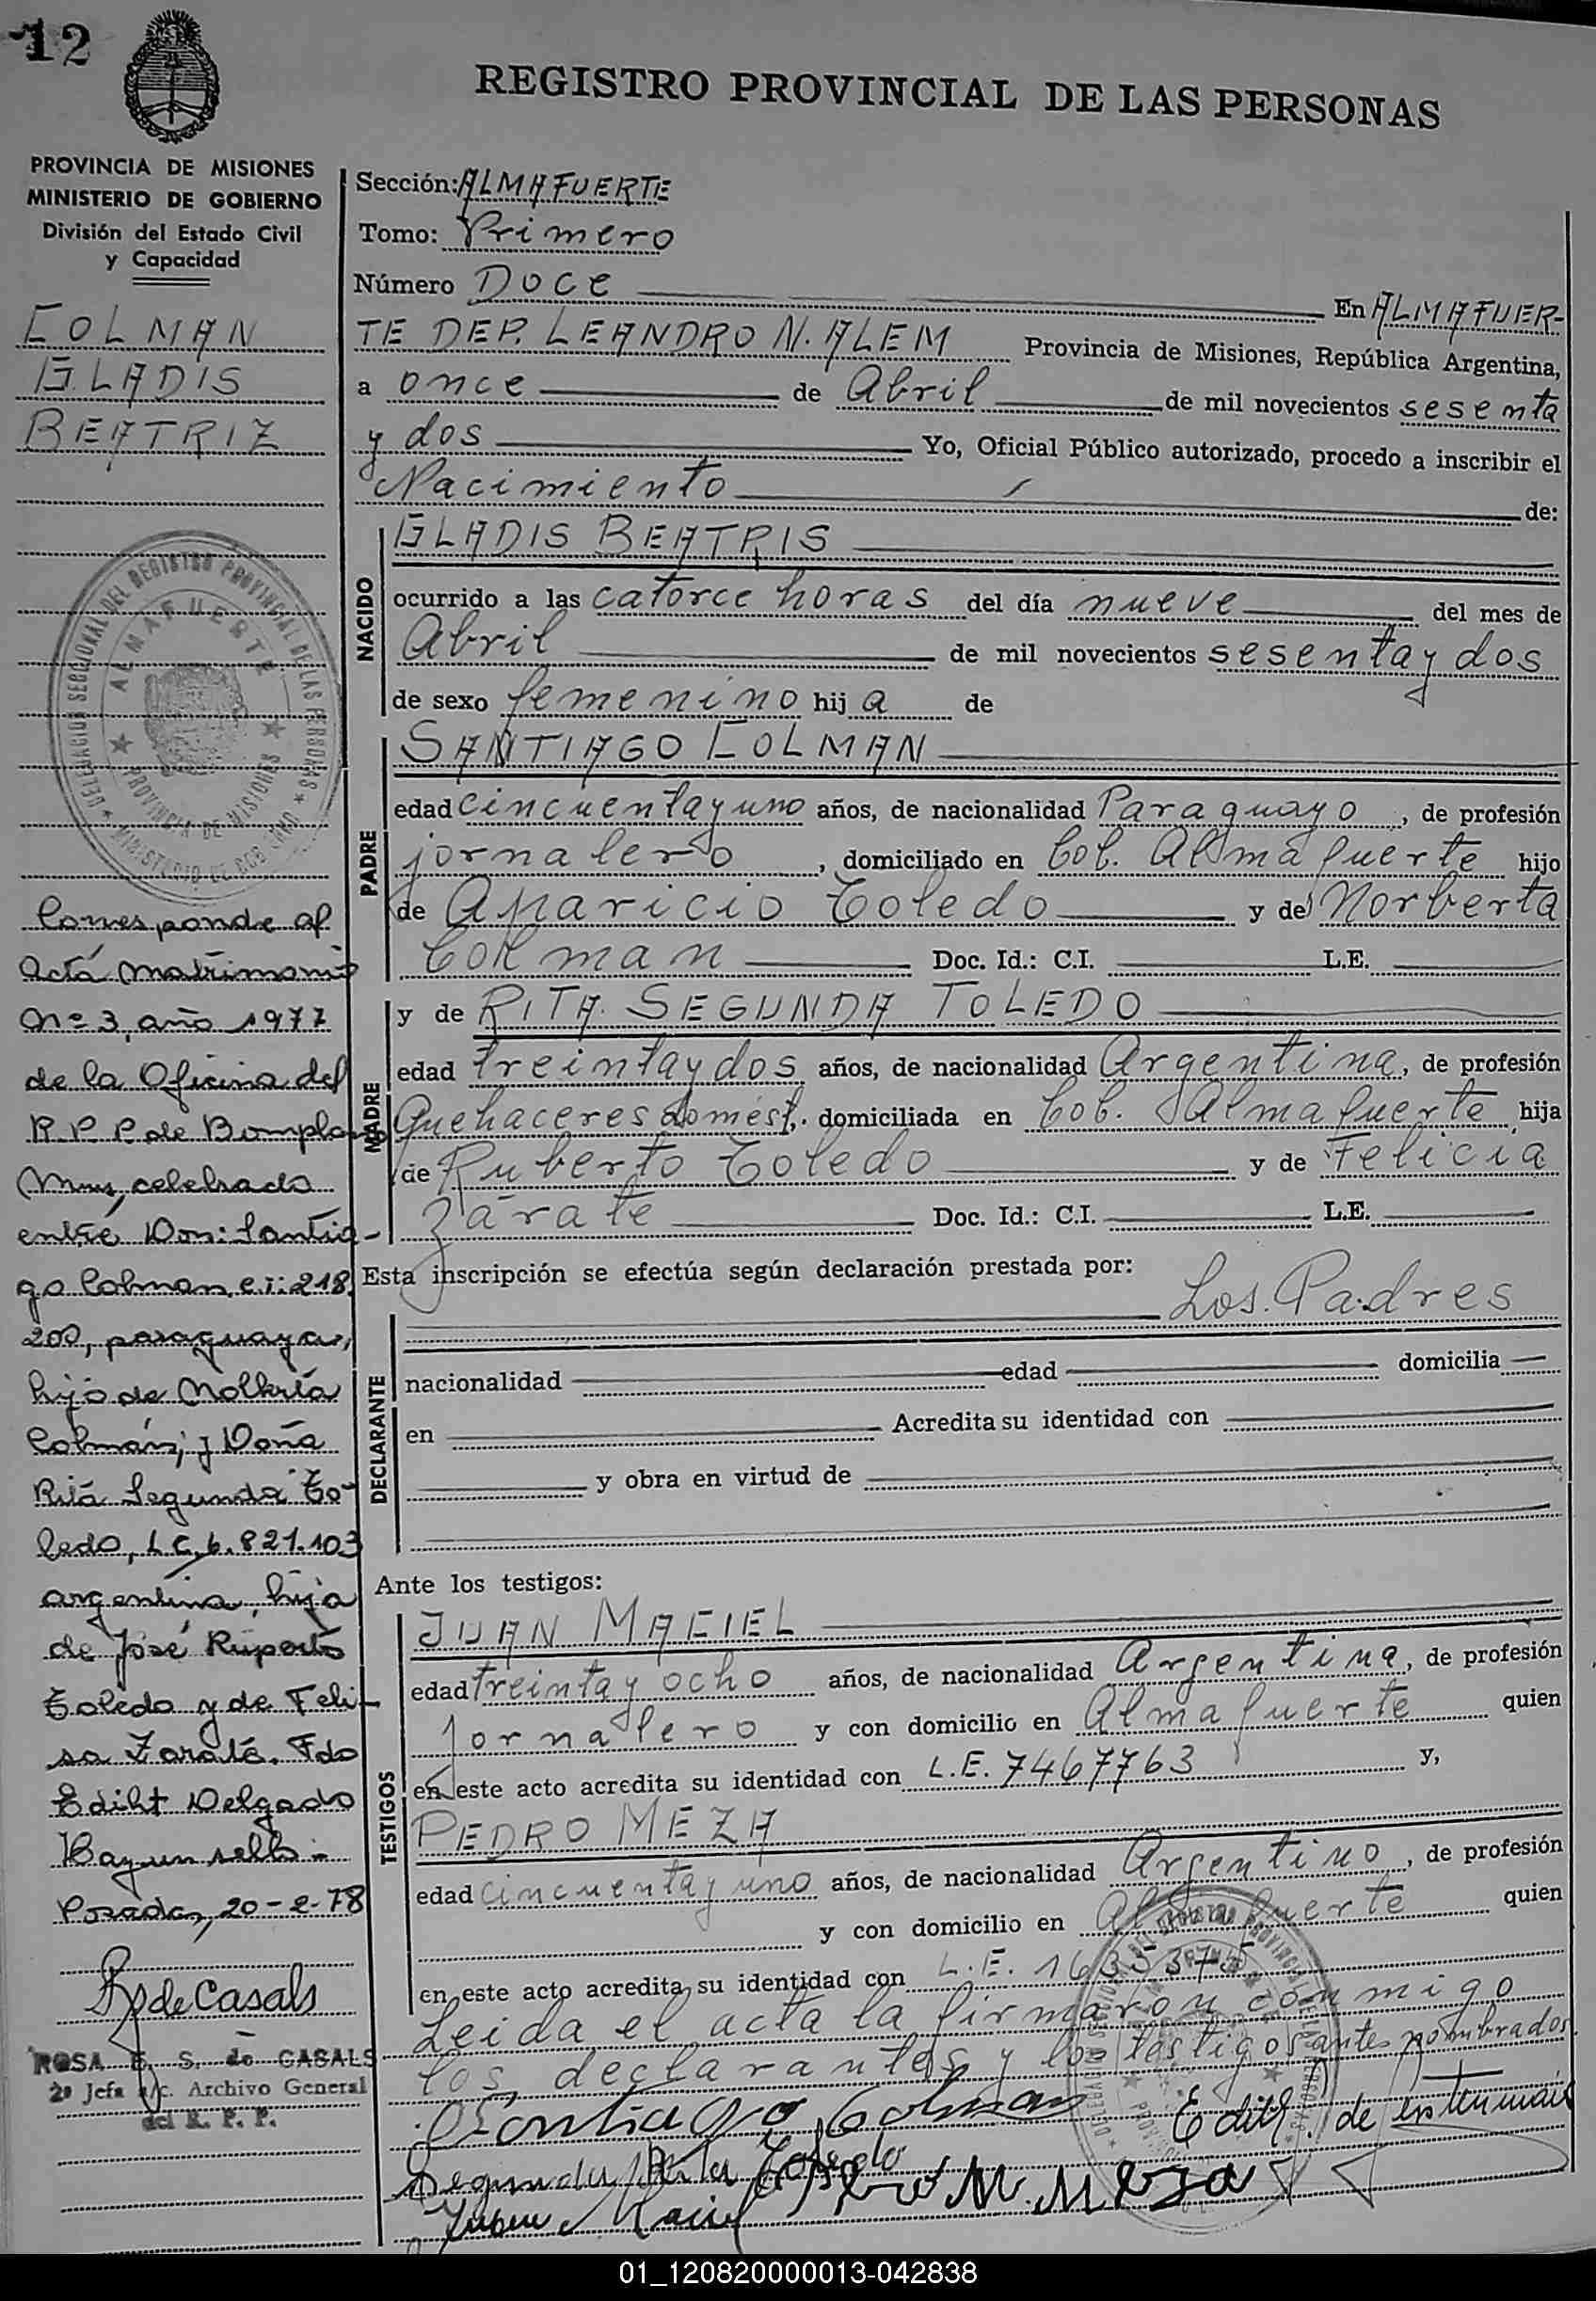 12
REGISTRO PROVINCIAL DE LAS PERSONAS
PROVINCIA DE MISIONES
MINISTERIO DE GOBIERNO
División del Estado Civil
y Capacidad
COLMAN
GLADIS
BEATRIZ
DELEGACION SECCIONAL DEL REGISTRO PROVINCIAL DE LAS PERSONAS
ALMAFUERTE
PROVINCIA DE MISIONES
MINISTERIO DE GOBIERNO
Corresponde al
acta matrimonio
Nº 3, año 1977
de la Oficina del
R.P.P de Bompland
Mnes, celebrado
entre Don: Santia-
go Colman, c.i: 218.
200, paraguayo,
hijo de Nolberta
Colmán; y Doña
Rita Segunda To-
ledo, L.C. 6.821.103
argentina, hija
de José Ruperto
Toledo y de Feli-
sa Zarate. Fdo
Ediht Delgado
Hay un sello.-
Posadas, 20-2-78
R de Casals
ROSA E. S. de CASALS
2º Jefa a/c. Archivo General
del R. P. P.
Sección: ALMAFUERTE
Tomo: Primero
Número DOCE En ALMAFUER-
TE DEP. LEANDRO N. ALEM Provincia de Misiones, República Argentina,
a once de Abril de mil novecientos sesenta
y dos Yo, Oficial Público autorizado, procedo a inscribir el
Nacimiento de:
NACIDO
GLADIS BEATRIS
ocurrido a las catorce horas del día nueve del mes de
Abril de mil novecientos sesenta y dos
de sexo femenino hij a de
PADRE
SANTIAGO COLMAN
edad cincuenta y uno años, de nacionalidad Paraguayo, de profesión
jornalero, domiciliado en Col. Almafuerte hijo
de Aparicio Toledo y de Norberta
Colman Doc. Id.: C.I. L.E.
MADRE
y de RITA SEGUNDA TOLEDO
edad treinta y dos años, de nacionalidad Argentina, de profesión
Quehaceres domést. domiciliada en Col. Almafuerte, hija
de Ruberto Toledo y de Felicia
Zárate Doc. Id.: C.I. L.E.
Esta inscripción se efectúa según declaración prestada por:
Los Padres
DECLARANTE
nacionalidad edad domicilia
en Acredita su identidad con
y obra en virtud de
Ante los testigos:
TESTIGOS
JUAN MACIEL
edad treinta y ocho años, de nacionalidad Argentina, de profesión
jornalero y con domicilio en Almafuerte quien
en este acto acredita su identidad con L.E. 7467763 y,
PEDRO MEZA
edad cincuenta y uno años, de nacionalidad Argentino, de profesión
y con domicilio en Almafuerte quien
en este acto acredita su identidad con L.E.
Leida el acta la firmaron conmigo
los declarantes y los testigos antes nombrados
Santiago Colman
Segunda Rita Toledo
Maciel
M. Meza
01_120820000013-042838